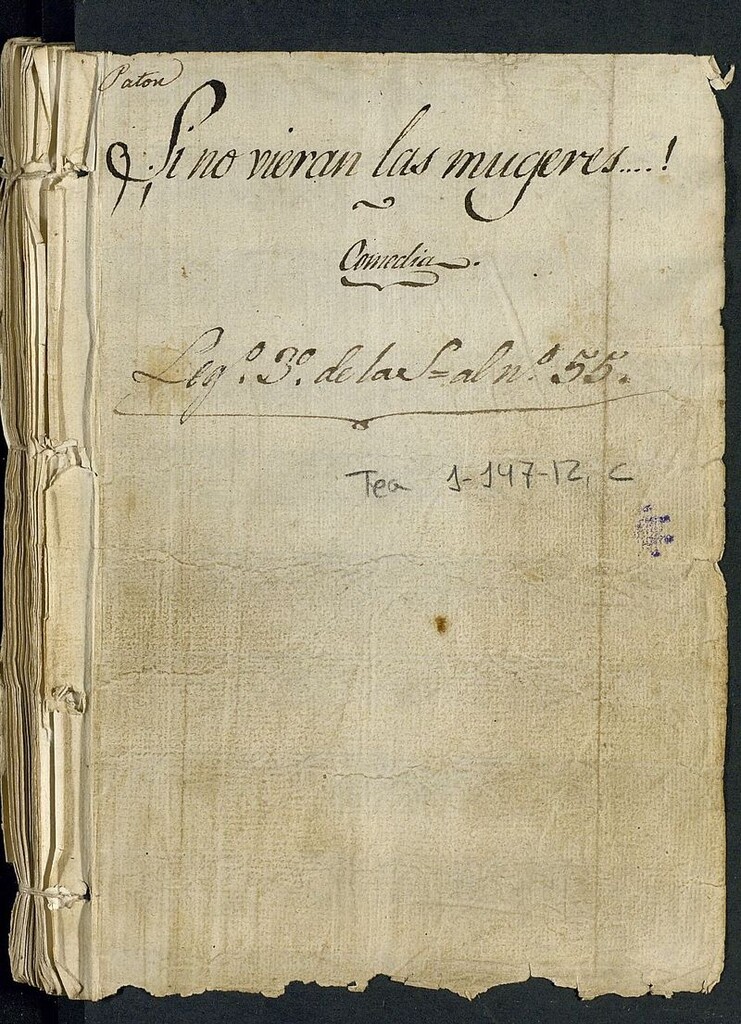 Paton
¡Si no vieran las mugeres....!
Comedia.
Leg.º 3.º de la S= al n.º 55.
Tea 1-147-12, c